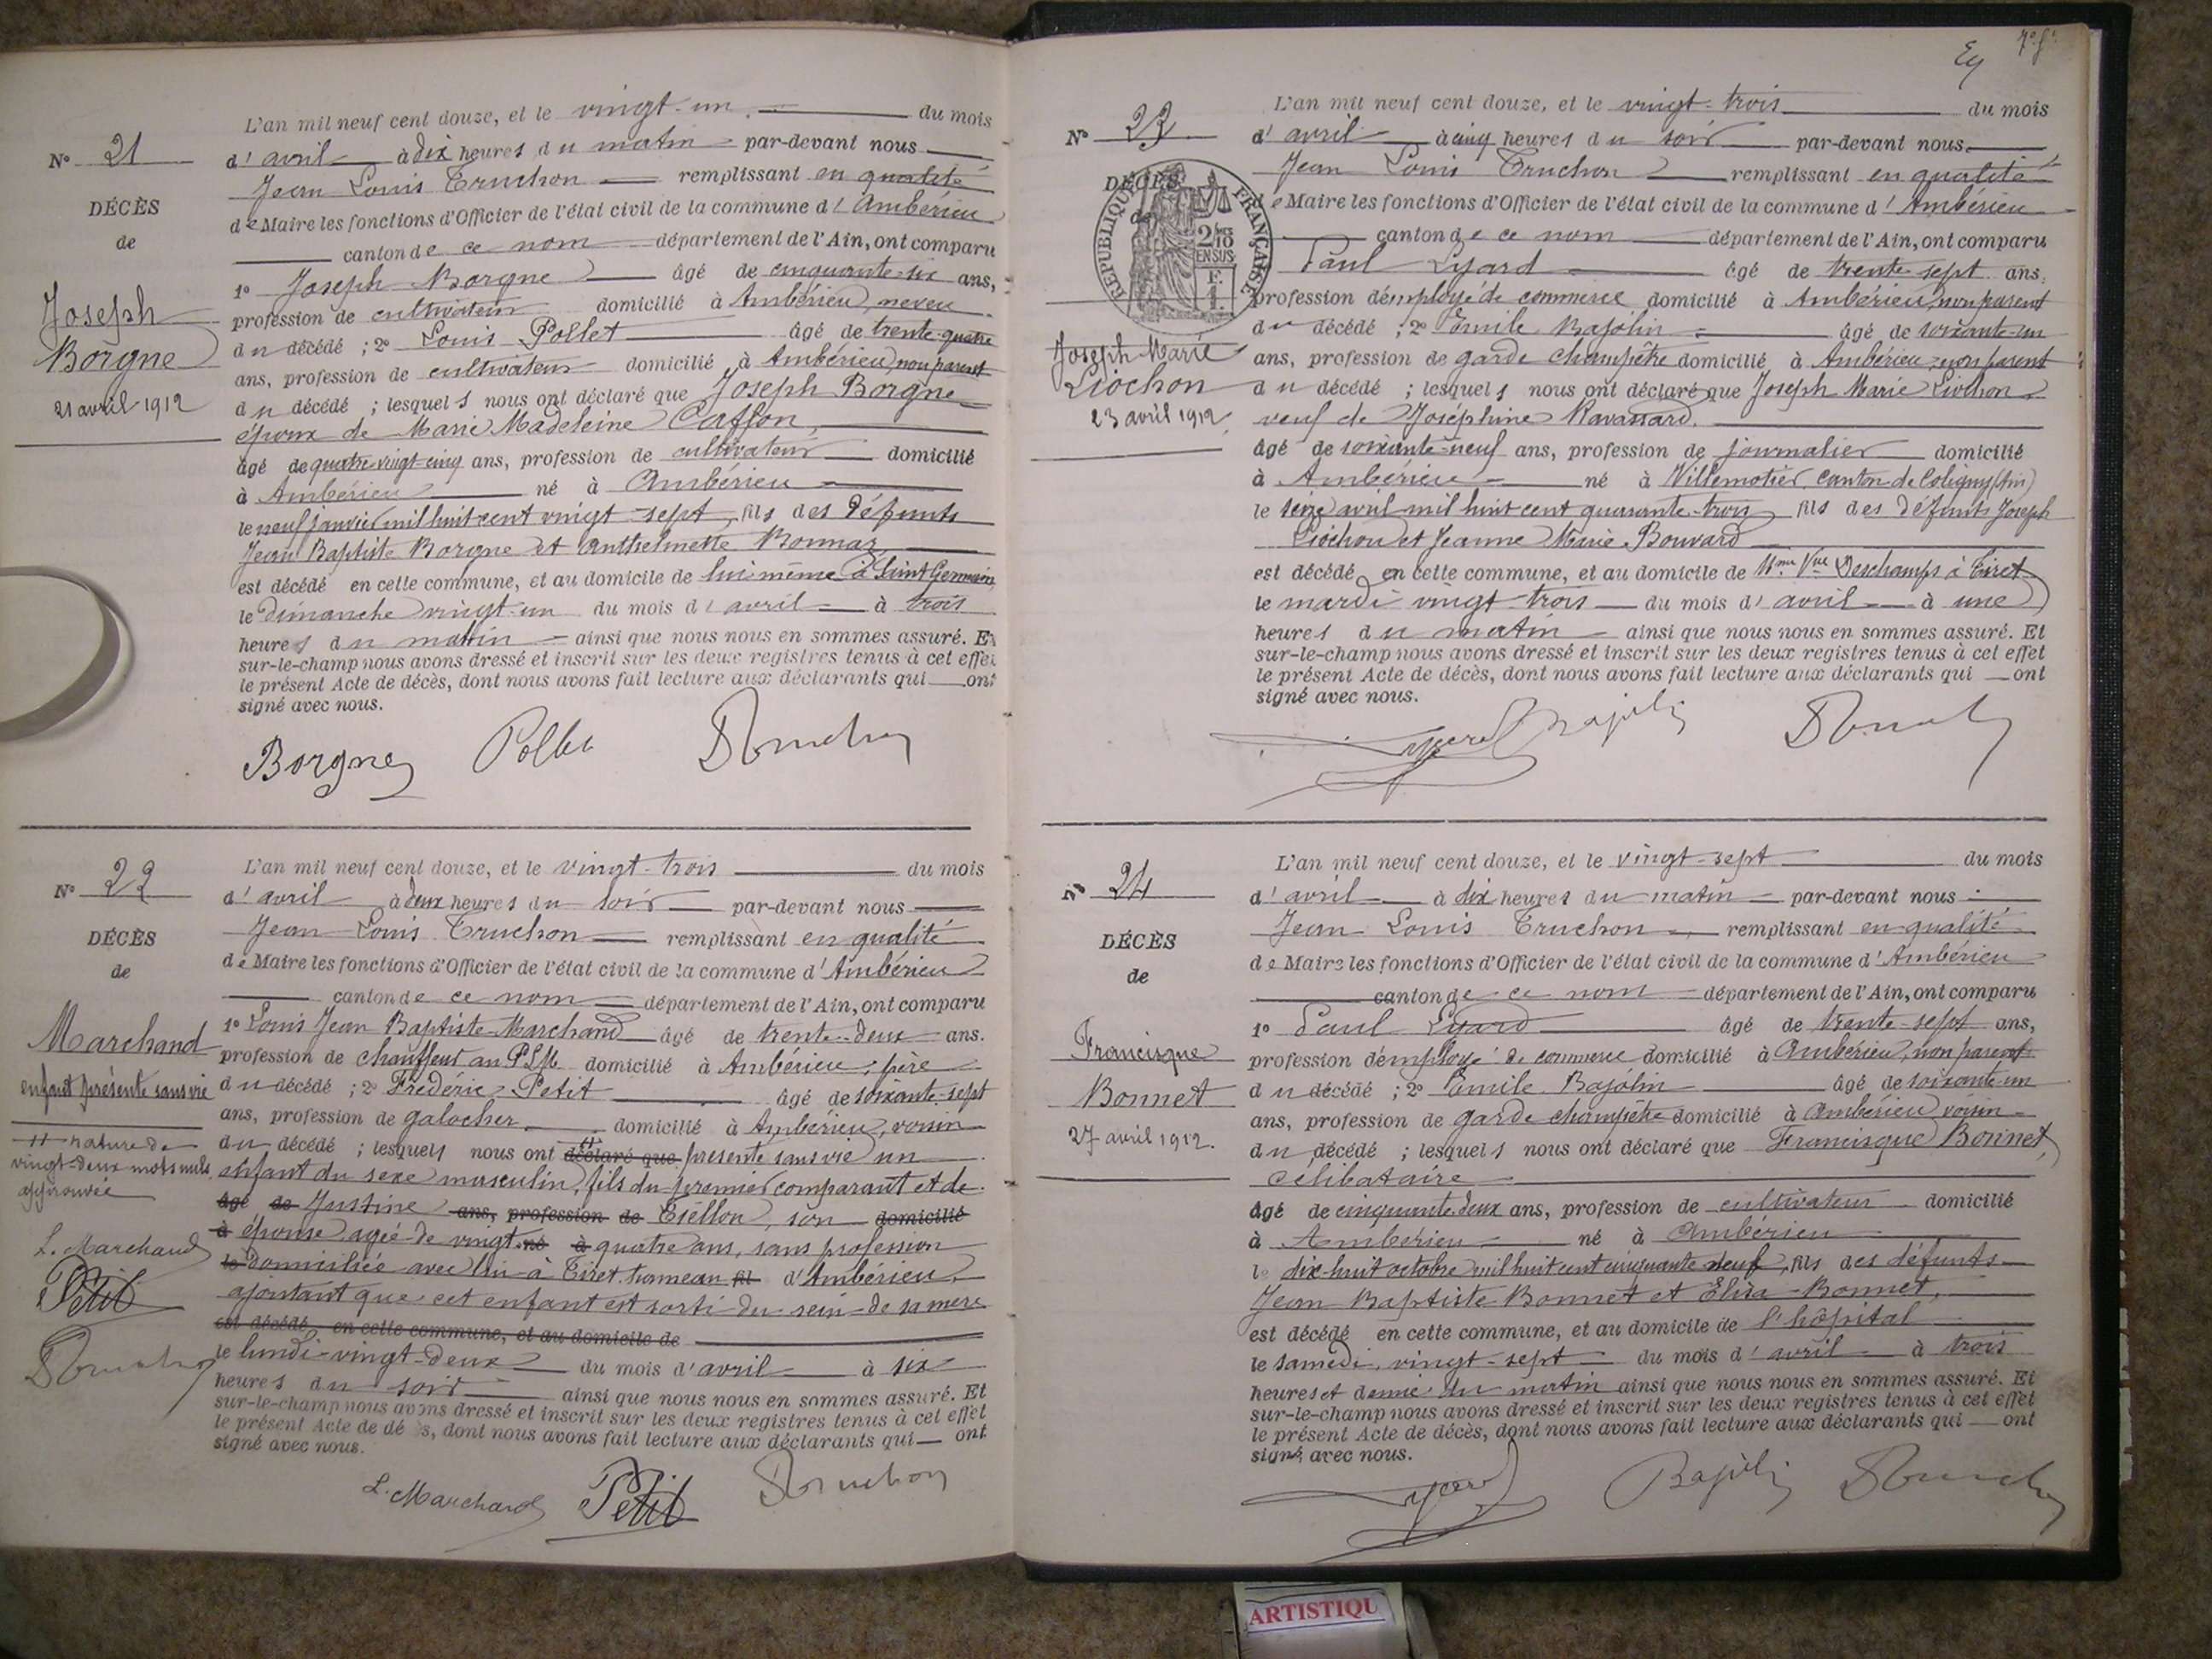 L'an mil neuf cent douze, et le vingt-un du mois
N° 21
d'avril à dix heures du matin par-devant nous
Jean Louis Truchon remplissant en qualité
DÉCÈS
de Maire les fonctions d'Officier de l'état civil de la commune d'Ambérieu
de
canton de ce nom département de l'Ain, ont comparu
1° Joseph Borgne âgé de cinquante-six ans,
Joseph
profession de cultivateur domicilié à Ambérieu, neveu
Borgne
du décédé ; 2° Louis Pollet âgé de trente-quatre
ans, profession de cultivateur domicilié à Ambérieu, non parent
21 avril 1912
du décédé ; lesquels nous ont déclaré que Joseph Borgne
époux de Marie Madeleine Caffon,
âgé de quatre-vingt-cinq ans, profession de cultivateur domicilié
à Ambérieu né à Ambérieu
le neuf janvier mil huit cent vingt-sept, fils des défunts
Jean Baptiste Borgne et Anthelmette Bonnaz
est décédé en cette commune, et au domicile de lui-même à Saint Germain
le Dimanche vingt-un du mois d'avril à trois
heures du matin ainsi que nous nous en sommes assuré. Et
sur-le-champ nous avons dressé et inscrit sur les deux registres tenus à cet effet
le présent Acte de décès, dont nous avons fait lecture aux déclarants qui ont
signé avec nous.
Borgne Pollet Truchon
L'an mil neuf cent douze, et le vingt-trois du mois
N° 22
d'avril à deux heures du soir par-devant nous
Jean Louis Truchon remplissant en qualité
DÉCÈS
de Maire les fonctions d'Officier de l'état civil de la commune d'Ambérieu
de
canton de ce nom département de l'Ain, ont comparu
Marchand
1° Louis Jean Baptiste Marchand âgé de trente-deux ans.
profession de chauffeur au PLM domicilié à Ambérieu, père
enfant présenté sans vie
du décédé ; 2° Frédéric Petit âgé de soixante-sept
ans, profession de galocher domicilié à Ambérieu, voisin
rature de
vingt-deux mots nuls
approuvée
du décédé ; lesquels nous ont déclaré que présenté sans vie un
enfant du sexe masculin, fils du premier comparant et de
âgé de Justine ans, profession de Tiéllon, son domicilié
à épouse agée de vingt né à quatre ans, sans profession
L. Marchand
le domiciliée avec lui à Tiret, hameau fil d'Ambérieu,
Petit
ajoutant que cet enfant est sorti du sein de sa mère
est décédé, en cette commune, et au domicile de
Truchon
le lundi vingt-deux du mois d'avril à six
heures du soir ainsi que nous nous en sommes assuré. Et
sur-le-champ nous avons dressé et inscrit sur les deux registres tenus à cet effet
le présent Acte de dé s, dont nous avons fait lecture aux déclarants qui ont
signé avec nous.
L. Marchand Petit Truchon
7° f°
L'an mil neuf cent douze, et le vingt-trois du mois
N° 23
d'avril à cinq heures du soir par-devant nous
Jean Louis Truchon remplissant en qualité
DÉCÈS
de
RÉPUBLIQUE FRANÇAISE
2/10 EN SUS
F. 1.
de Maire les fonctions d'Officier de l'état civil de la commune d'Ambérieu
canton de ce nom département de l'Ain, ont comparu
Paul Lyard âgé de trente-sept ans,
profession d'employé de commerce domicilié à Ambérieu, non parent
du décédé ; 2° Emile Bajolin âgé de soixante-un
Joseph Marie
ans, profession de garde champêtre domicilié à Ambérieu, non parent
Liochon
du décédé ; lesquels nous ont déclaré que Joseph Marie Liochon
23 avril 1912
veuf de Joséphine Ravassard.
âgé de soixante-neuf ans, profession de journalier domicilié
à Ambérieu né à Villemotier canton de Coligny (Ain)
le seize avril mil huit cent quarante-trois fils des défunts Joseph
Liochon et Jeanne Marie Bouvard
est décédé en cette commune, et au domicile de Mme Vve Deschamps à Tiret
le mardi vingt-trois du mois d'avril à une
heures du matin ainsi que nous nous en sommes assuré. Et
sur-le-champ nous avons dressé et inscrit sur les deux registres tenus à cet effet
le présent Acte de décès, dont nous avons fait lecture aux déclarants qui ont
signé avec nous.
Lyard Bajolin Truchon
L'an mil neuf cent douze, et le vingt-sept du mois
N° 24
d'avril à dix heures du matin par-devant nous
Jean Louis Truchon remplissant en qualité
DÉCÈS
de Maire les fonctions d'Officier de l'état civil de la commune d'Ambérieu
de
canton de ce nom département de l'Ain, ont comparu
1° Paul Lyard âgé de trente-sept ans,
Francisque
profession d'employé de commerce domicilié à Ambérieu, non parent
Bonnet
du décédé ; 2° Emile Bajolin âgé de soixante-un
ans, profession de garde champêtre domicilié à Ambérieu voisin
27 avril 1912.
du décédé ; lesquels nous ont déclaré que Francisque Bonnet,
célibataire
âgé de cinquante-deux ans, profession de cultivateur domicilié
à Ambérieu né à Ambérieu
le dix-huit octobre mil huit cent cinquante neuf, fils des défunts
Jean Baptiste Bonnet et Elisa Bonnet,
est décédé en cette commune, et au domicile de l'hôpital
le samedi vingt-sept du mois d'avril à trois
heures et demie du matin ainsi que nous nous en sommes assuré. Et
sur-le-champ nous avons dressé et inscrit sur les deux registres tenus à cet effet
le présent Acte de décès, dont nous avons fait lecture aux déclarants qui ont
signé avec nous.
Lyard Bajolin Truchon
ARTISTIQU